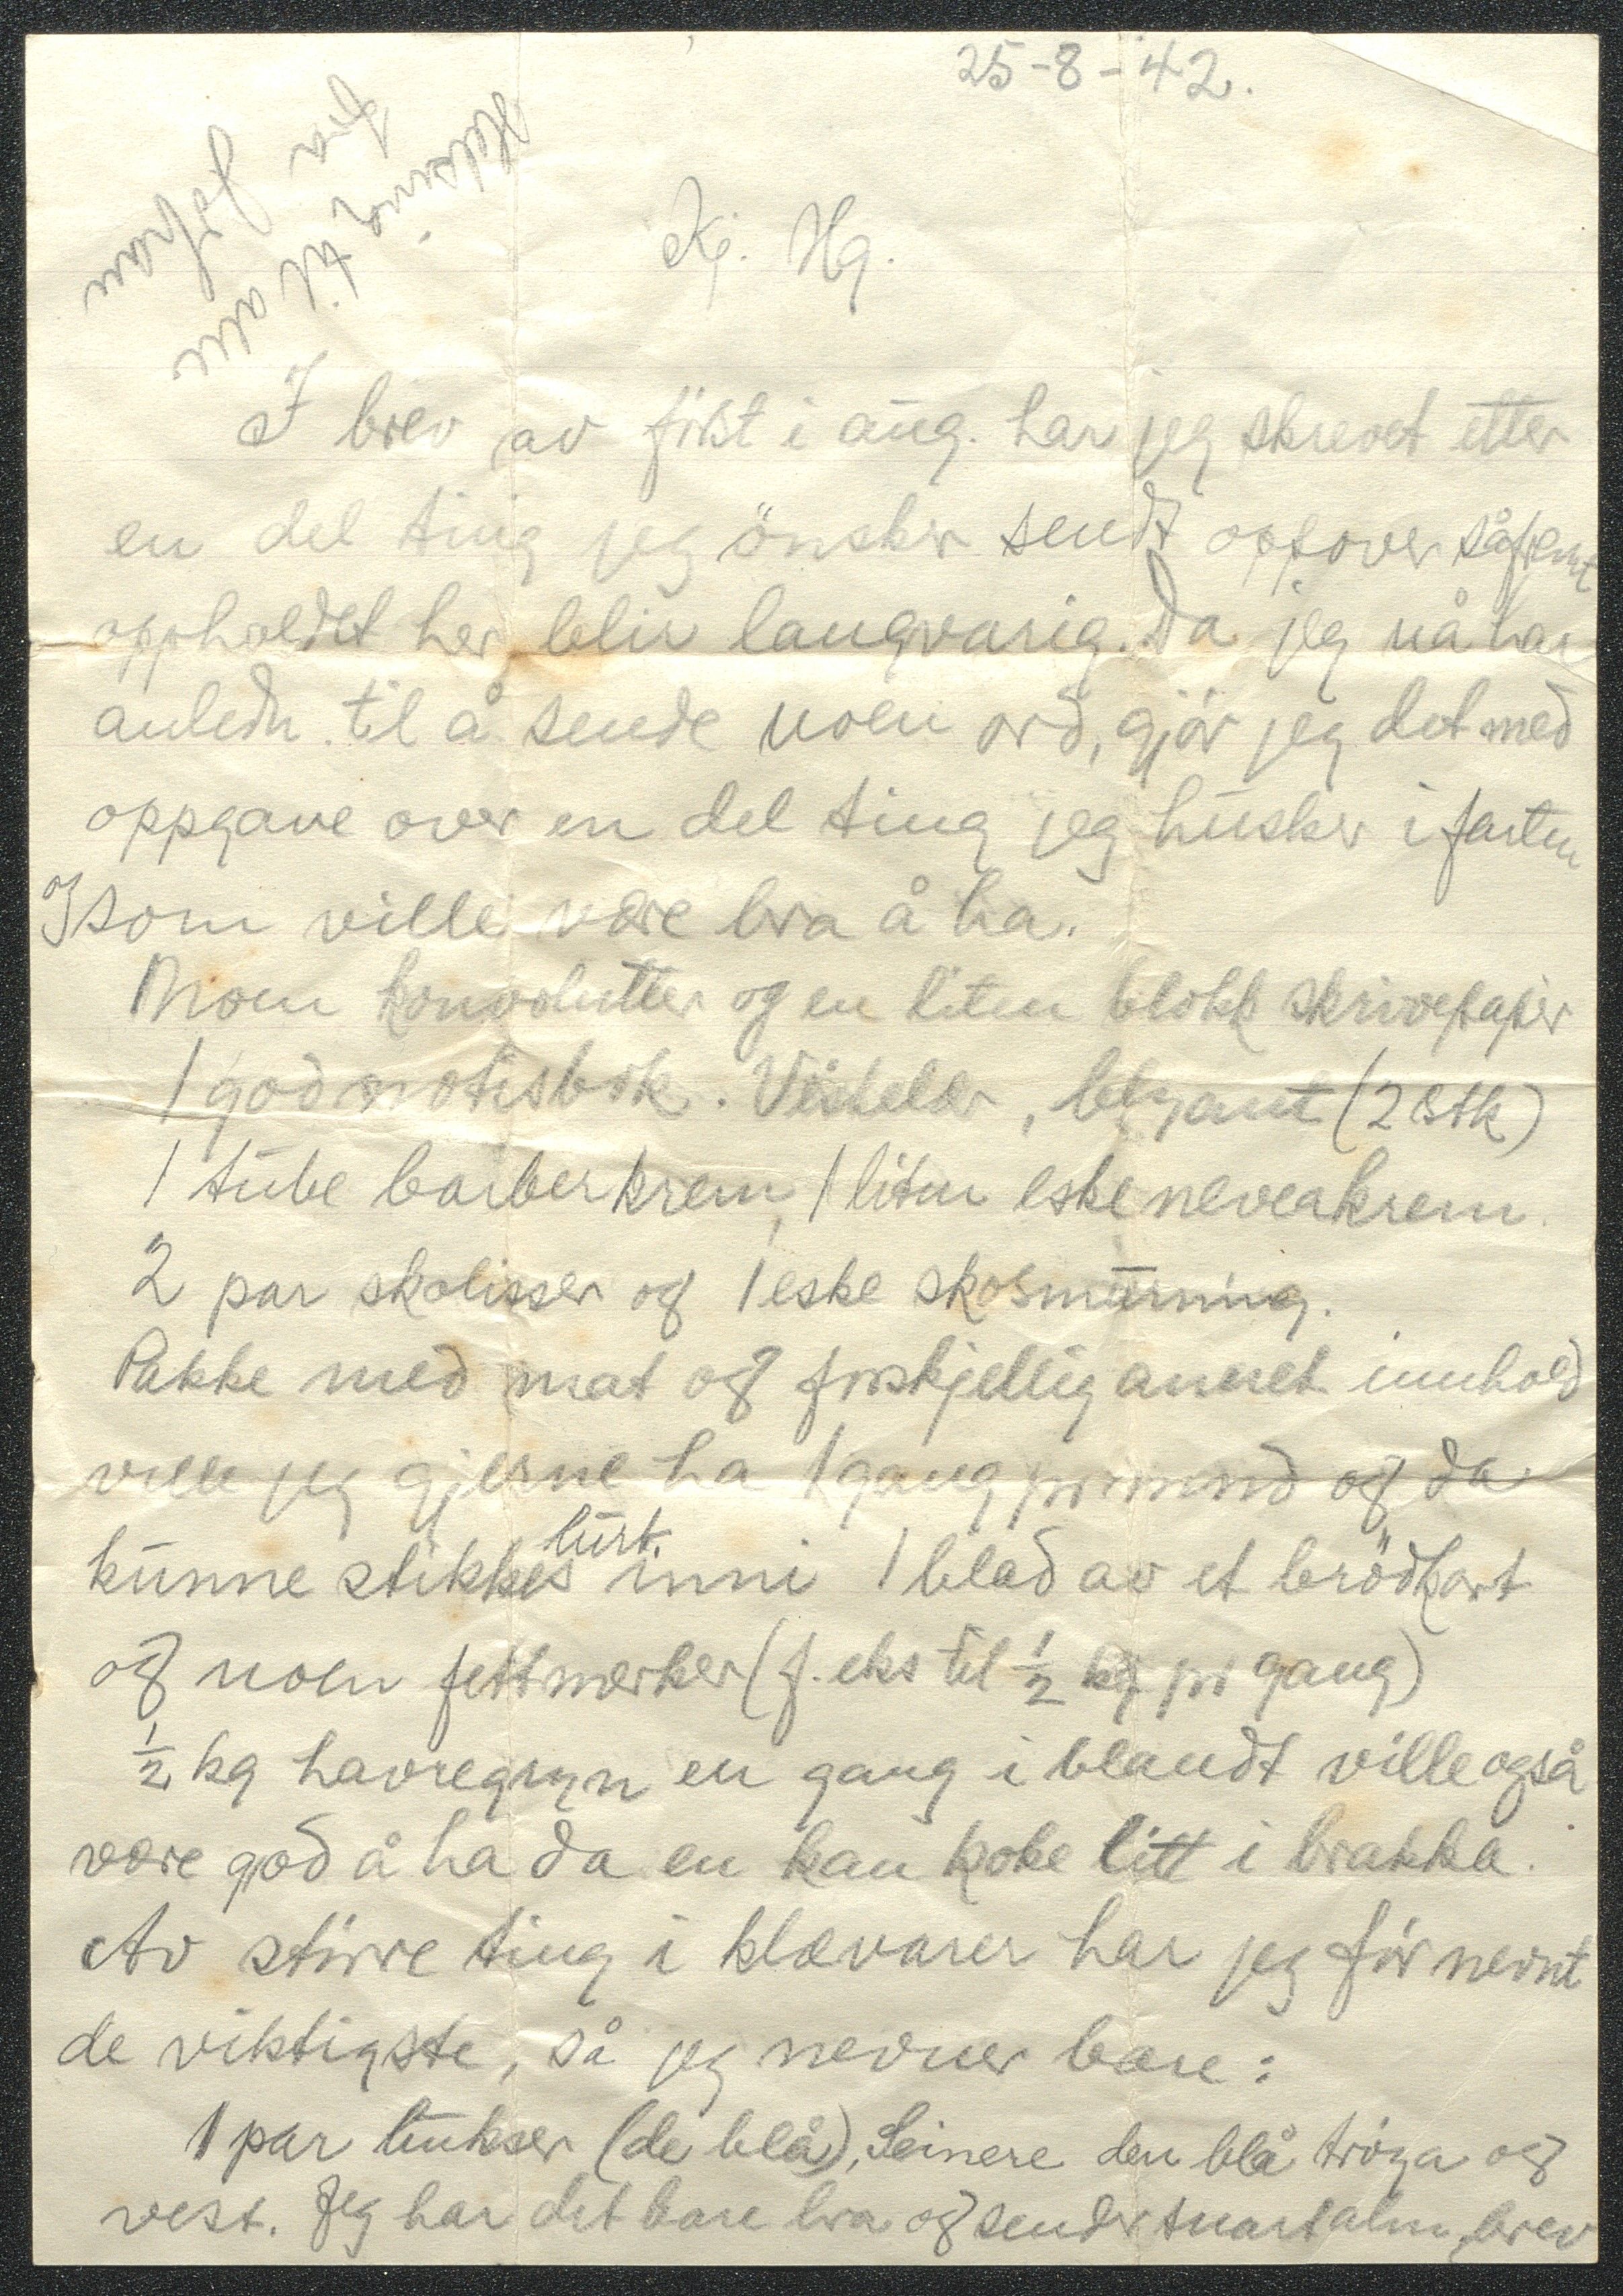 25-8-42.
Kj. Hg.
I brev av först i aug. har jeg skrevet etter
en del ting jeg önsker sendt oppover såfremt
oppholdet her blir langvarig. Da jeg nå har
anledn. til å sende noen ord, gjör jeg det med
oppgave over en del ting jeg husker i farten
og som ville være bra å ha.
Noen konvolutter og en liten blokk skrivepapir
1 god notisbok. Viskelær, blyant (2 stk)
1 tube barberkrem, 1 liten eske niveakrem.
2 par skolisser og 1 eske skosmurning.
Pakke med mat og forskjellig annet innhold
ville jeg gjerne ha 1 gang pr mnd og da
kunne stikkes lurt. inni 1 blad av et brödkort
og noen fettmerker (f. eks til ½ kg pr gang)
½ kg havregryn en gang i blandt ville også
være god å ha da en kan koke litt i brakka.
Av större ting i klævarer har jeg för nevnt
de viktigste, så jeg nevner bare:
1 par bukser (de blå), Seinere den blå tröya og
vest. Jeg har det bare bra og sender snart alm. brev
Helsing til alle
fra